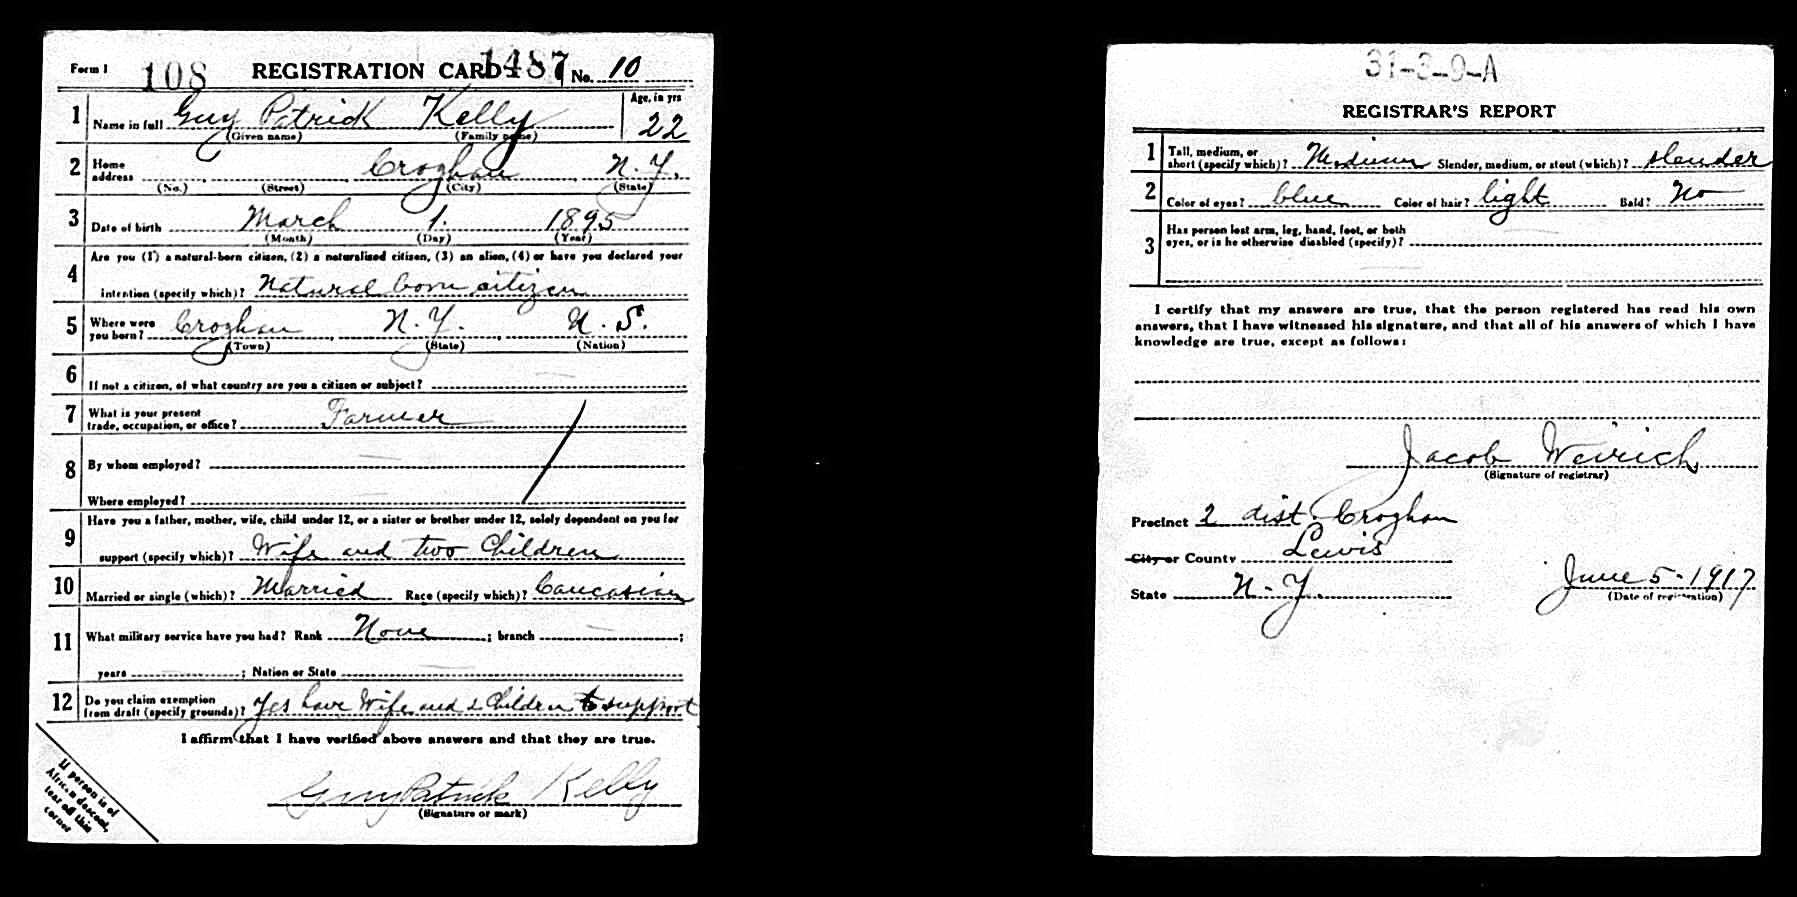 Form 1 108 REGISTRATION CARD 1487 No. 10
1 Name in full Guy Patrick Kelly Age, in yrs 22
(Given name) (Family name)
2 Home address Croghan N.Y.
(No.) (Street) (City) (State)
3 Date of birth March 1. 1895
(Month) (Day) (Year)
4 Are you (1) a natural-born citizen, (2) a naturalized citizen, (3) an alien, (4) or have you declared your
intention (specify which)? Natural born citizen
5 Where were you born? Croghan N.Y. U.S.
(Town) (State) (Nation)
6 If not a citizen, of what country are you a citizen or subject?
7 What is your present trade, occupation, or office? Farmer
8 By whom employed?
Where employed?
9 Have you a father, mother, wife, child under 12, or a sister or brother under 12, solely dependent on you for
support (specify which)? Wife and two Children
10 Married or single (which)? Married Race (specify which)? Caucasian
11 What military service have you had? Rank None ; branch ;
years ; Nation or State
12 Do you claim exemption from draft (specify grounds)? Yes have Wife and 2 Children to support
I affirm that I have verified above answers and that they are true.
Guy Patrick Kelly
(Signature or mark)
If person is of
African descent,
tear off this
corner
31-3-9-A
REGISTRAR'S REPORT
1 Tall, medium, or short (specify which)? Medium Slender, medium, or stout (which)? slender
2 Color of eyes? blue Color of hair? light Bald? No
3 Has person lost arm, leg, hand, foot, or both
eyes, or is he otherwise disabled (specify)?
I certify that my answers are true, that the person registered has read his own
answers, that I have witnessed his signature, and that all of his answers of which I have
knowledge are true, except as follows:
Jacob Weirich
(Signature of registrar)
Precinct 2 dist. Croghan
City or County Lewis
State N.Y. June 5-1917
(Date of registration)